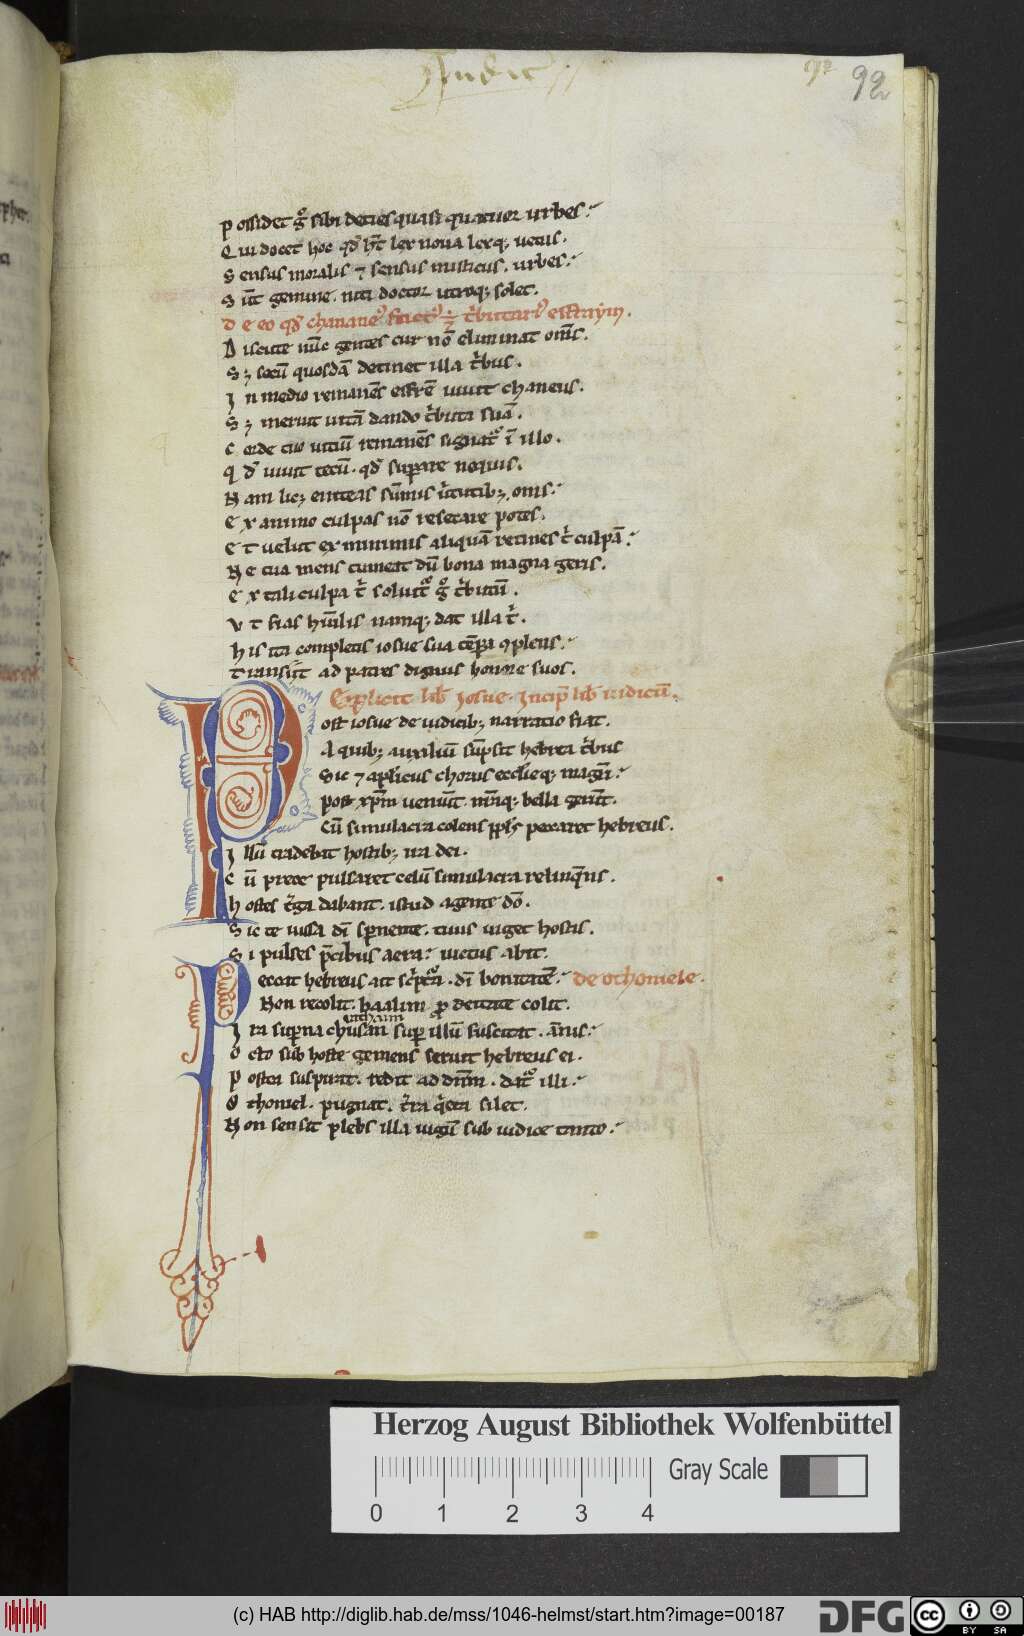 Judic
92
92
possidet gͦ sibi decies quasi quatuor urbes.
Qui docet hoc qđ hͭ lex noua lexq; uetus.
Sensus moralis ⁊ sensus misticus. urbes.
Sūt gemine. nͣ doctor utroq; solet.
De eo qđ chananeꝰ factꝰ ÷ tͥbutariꝰ effraym.
Discute nūc gentes cur nō eliminat omīs.
Sꝫ secū quosdā detinet illa tͥbus.
In medio remanēs effrē uiuit chaneus.
Sꝫ meruit uitā dando tͥbuta suā.
Corde tuo uitiū remanēs signatͬ ī illo.
Qđ uiuit tecū. qđ supare nequis.
Nam licꝫ eniteas sūmis uͥtutibꝫ omis.
Ex animo culpas nō resecare potes.
Et uelut ex minimis aliquā retines tͥ culpā.
Ne tua mens tumeat dū bona magna geris.
Ex tali culpa tͥ soluitͬ gͦ tͥbutū.
Vt fias hūilis namq; dat illa tͥ.
His ita completis iosue sua tēpa ꝯplens.
Transiit ad patres dignus honore suos.
Explicit lib̄ Josue. Incip̄ lib̄ iudicū.
Post iosue de iudicibꝫ narratio fiat.
A quibꝫ auxiliū sūpsit hebrea tͥbus
Sic ⁊ aplicus chorus ecclieq; magrī.
post xp̄m ueniūt. nr̄aq; bella gerūt.
Cū simulacra colens ppl̄s peccaret hebreus.
Illū tradebat hostibꝫ ira dei.
Cū prece pulsaret celū simulacra relinquēs.
Hostes tͣga dabant. istud agente dō.
Sic te iussa dī spernente. tuus uiget hostis.
Si pulses pͤcibus aera: uictus abit.
Peccat hebreus ait scͥptͣa. dī bonitatē. de othoniele.
Non recolit. baalim p deitate colit.
Ira superna chusan rathaim super illū suscitat. annis.
Octo sub hoste gemens seruit hebreus ei.
Postea suspirat. redit ad dnm. datͬ illi.
Othoniel. pugnat. tͬra qͥeta silet.
Non sensit plebs illa iugū sub iudice tanto.
Herzog August Bibliothek Wolfenbüttel
Gray Scale
0 1 2 3 4
(c) HAB http://diglib.hab.de/mss/1046-helmst/start.htm?image=00187
DFG
cc BY SA